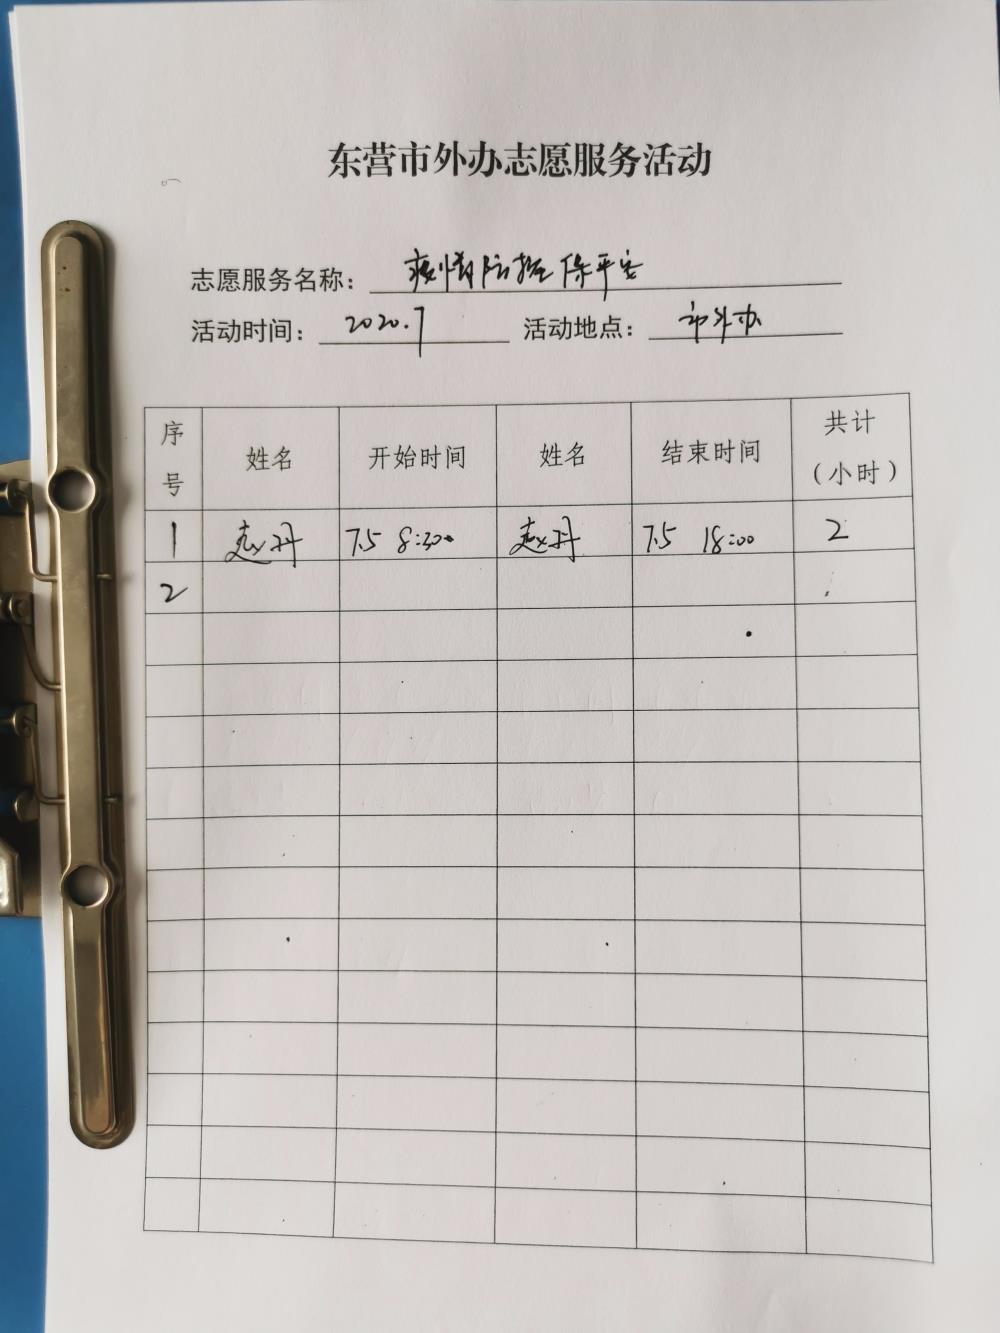 东营市外办志愿服务活动
志愿服务名称：疫情防控保平安
活动时间：2020.7 活动地点：市外办
序号 姓名 开始时间 姓名 结束时间 共计（小时）
1 赵丹 7.5 8:30 赵丹 7.5 18:00 2
2